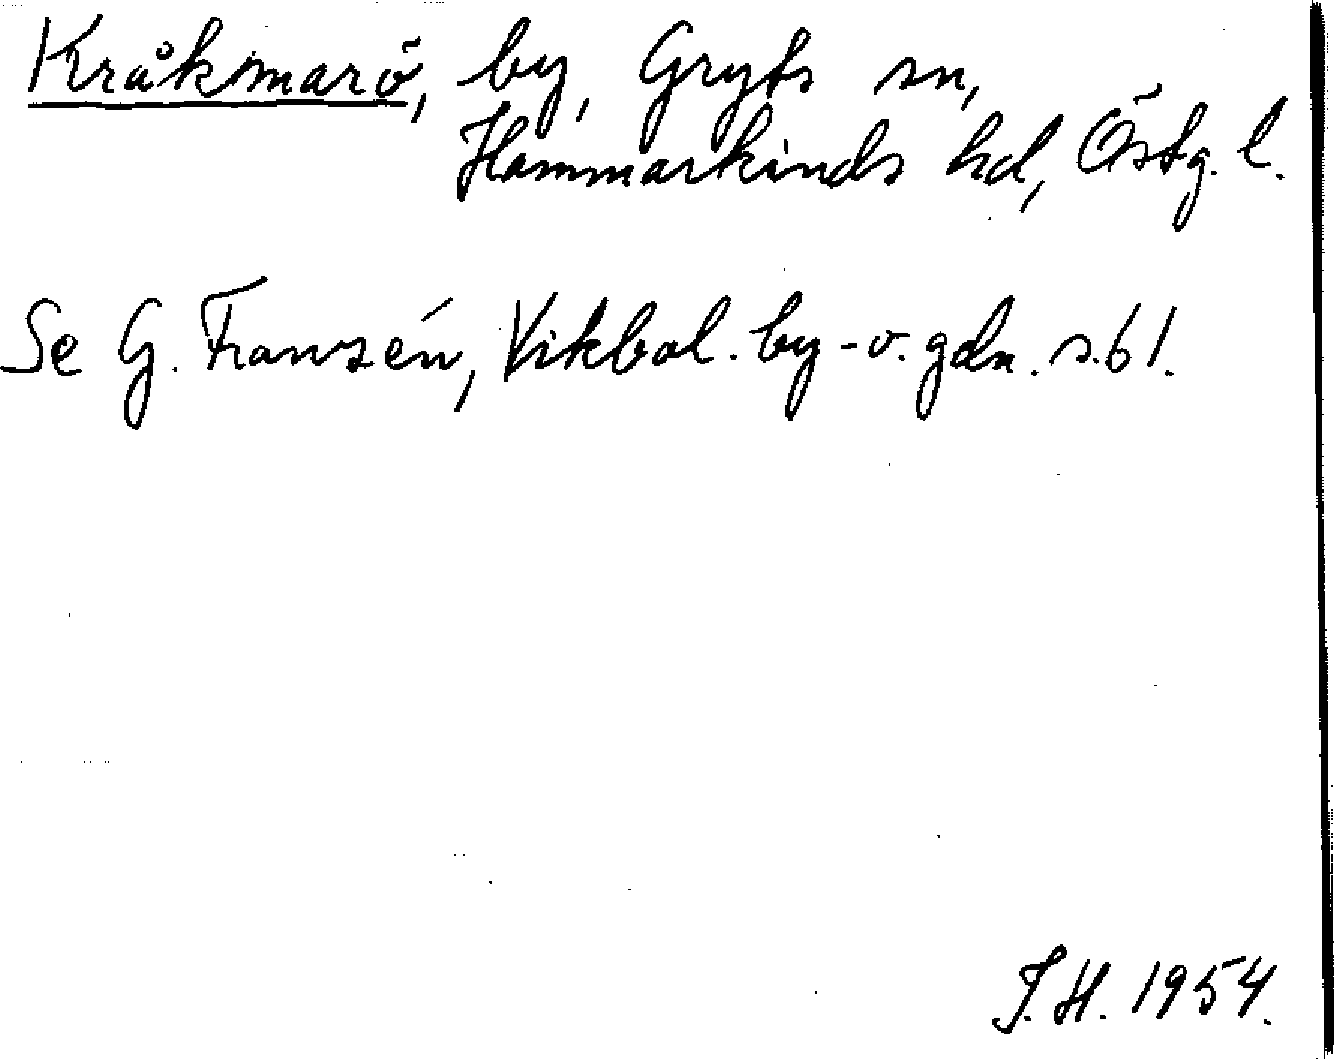 Kråkmarö, by, Gryts sn,
Hammarkinds hd, Östg. l.
Se G. Franzén, Vikbol. by- o. gdn. s. 61.
J. H. 1954.